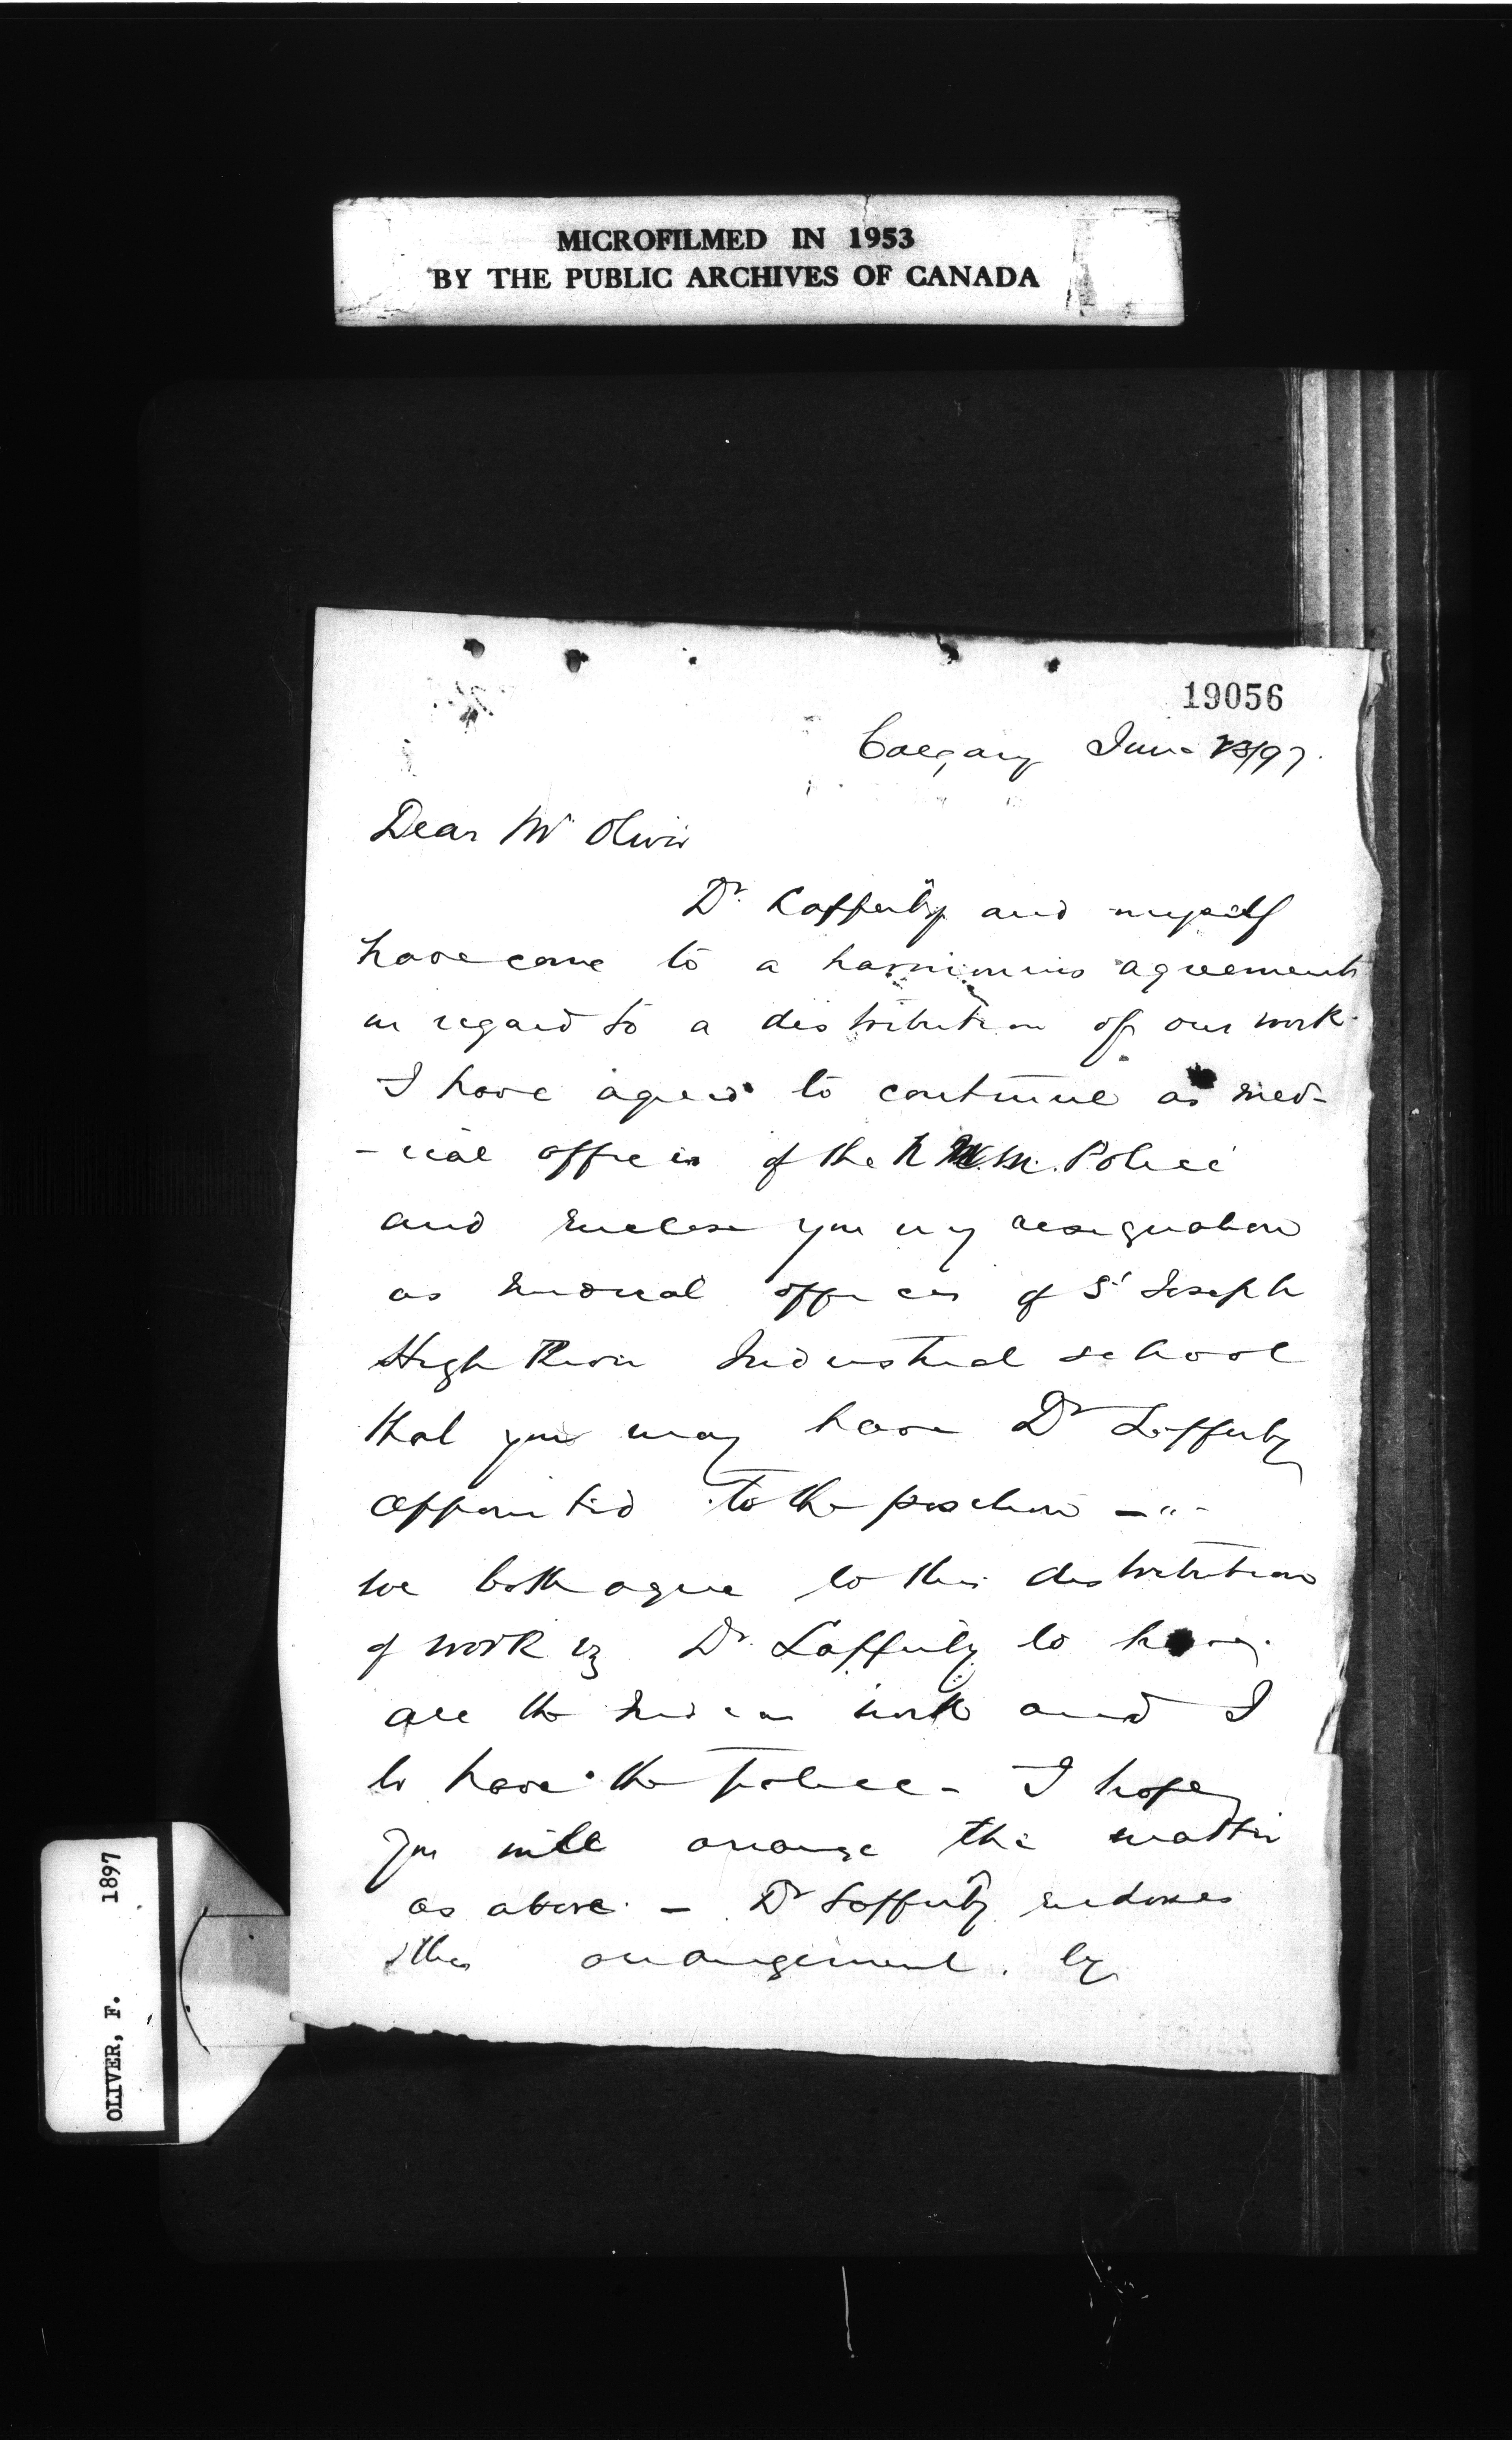 MICROFILMED IN 1953
BY THE PUBLIC ARCHIVES OF CANADA
19056
Calgary June 23/97.
Dear Mr Oliver
Dr. Lafferty and myself
have come to a harmonious agreement
in regard to a distribution of our work.
I have agreed to continue as med-
-ical officer of the N.W.M. Police
and enclose you my resignation
as medical officer of St Joseph
High River Industrial school
that you may have Dr Lafferty
appointed to the position - " -
We both agree to this distribution
of work viz Dr. Lafferty to have
all the Indian work and I
to have the police - I hope
you will arrange the matter
as above. - Dr Lafferty endorses
this arrangement. by
OLIVER, F. 1897